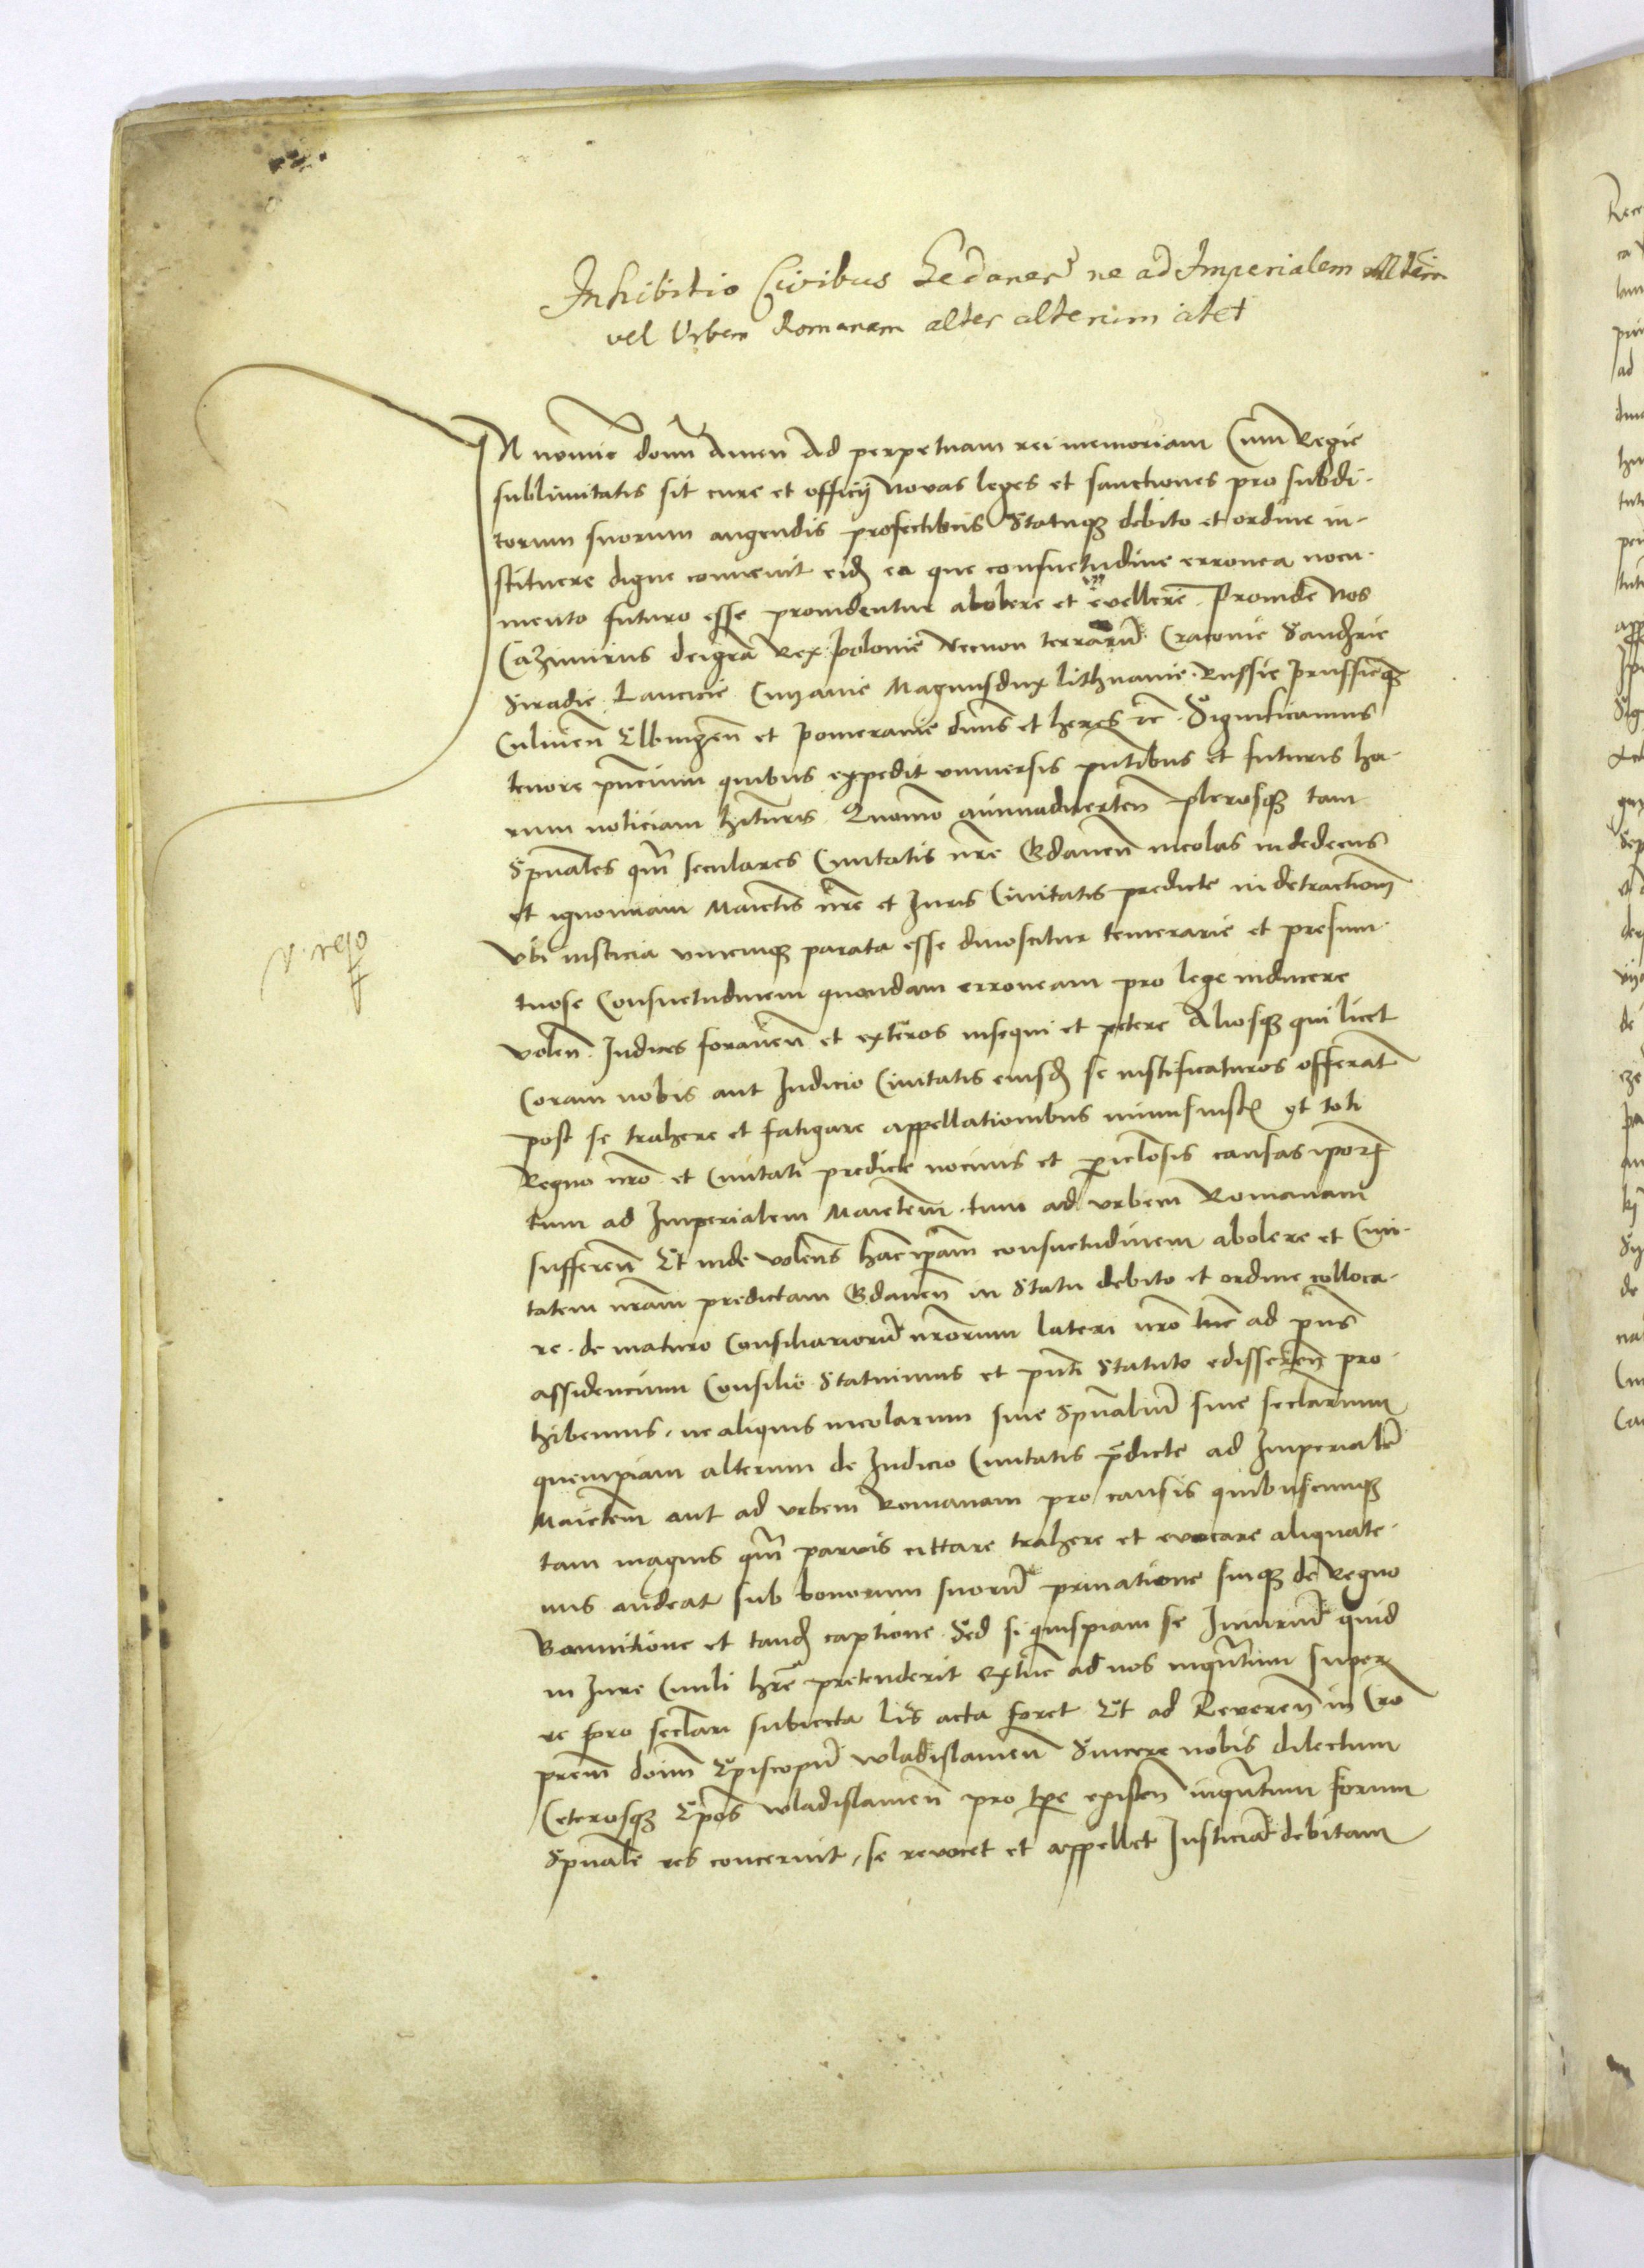 Inhibitio Civibus Gedanen ne ad Imperialem Mtem
vel Urbem Romanam alter alterum citet
IN nomine domi Amen Ad perpetuam rei memoriam Cum Regie
sublimitatis sit cure et officij Novas leges et sanctiones pro subdi-
torum suorum augendis profectibus Statuq debito et ordine in-
stituere digne convenit eid ea que consuetudine erronea nocu-
mento futuro esse providentur abolere et evellere. Proinde Nos
Cazimirus dei gra Rex Polonie Necnon terrarum Cracovie Sandzrie
Siradie Lancicie Cuyavie Magnusdux Lithuanie Russie Prussieq
Culmen Elbingen et Pomeranie dnus et heres etc. Significamus
tenore pncium quibus expedit universis pntibus et futuris ha-
rum noticiam hituris Quomo animadverten plerosq tam
Spuales qm seculares Civitatis nre Gdanen incolas in dedecus
et ignominiam Maietis nre et Juris Civitatis predicte in detractiom
Ubi iusticia unicuiq parata esse dinoscitur temerarie et presum-
tuose Consuetudinem quandam erroneam pro lege inducere
volen. Judices foranen et exteros insequi et petere Aliosq qui licet
Coram nobis aut Judicio Civitatis eiusd se iustificaturos offerat
post se trahere et fatigare appellationibus nimis iust et toti
Regno nro et Civitati predicte nocivis et periclosis causas ipor
tum ad Imperialem Maietem tum ad urbem Romanam
sufferen Et inde volens hanc ipam consuetudinem abolere et Civi-
tatem nram predictam Gdanen in Statu debito et ordine colloca-
re. de maturo Consiliariorum nrorum lateri nro tunc ad pns
assidencium Consilio Statuimus et pnti Statuto edisseren pro-
hibemus, ne aliquis incolarum sive Spualium sive seclarium
quempiam alterum de Judicio Civitatis pdicte ad Imperialem
Maietem aut ad urbem Romanam pro causis quibuscumq
tam magnis qm parvis cittare trahere et evocare aliquate-
nus audeat sub bonorum suorum privatione suiq de Regno
Bannitione et tand captione Sed si quispiam se Iniurium quid
in Jure Civili hre pretenderit Extunc ad nos inqntum super
re foro seclari subiecta lis acta foret Et ad Reveren in Cro
prem domm Episcopum wladislavien Sincere nobis dilectum
Ceterosq Epos wladislavien pro tpe existen inqntum forum
Spuale res concernit, se revocet et appellet Justicia debitam